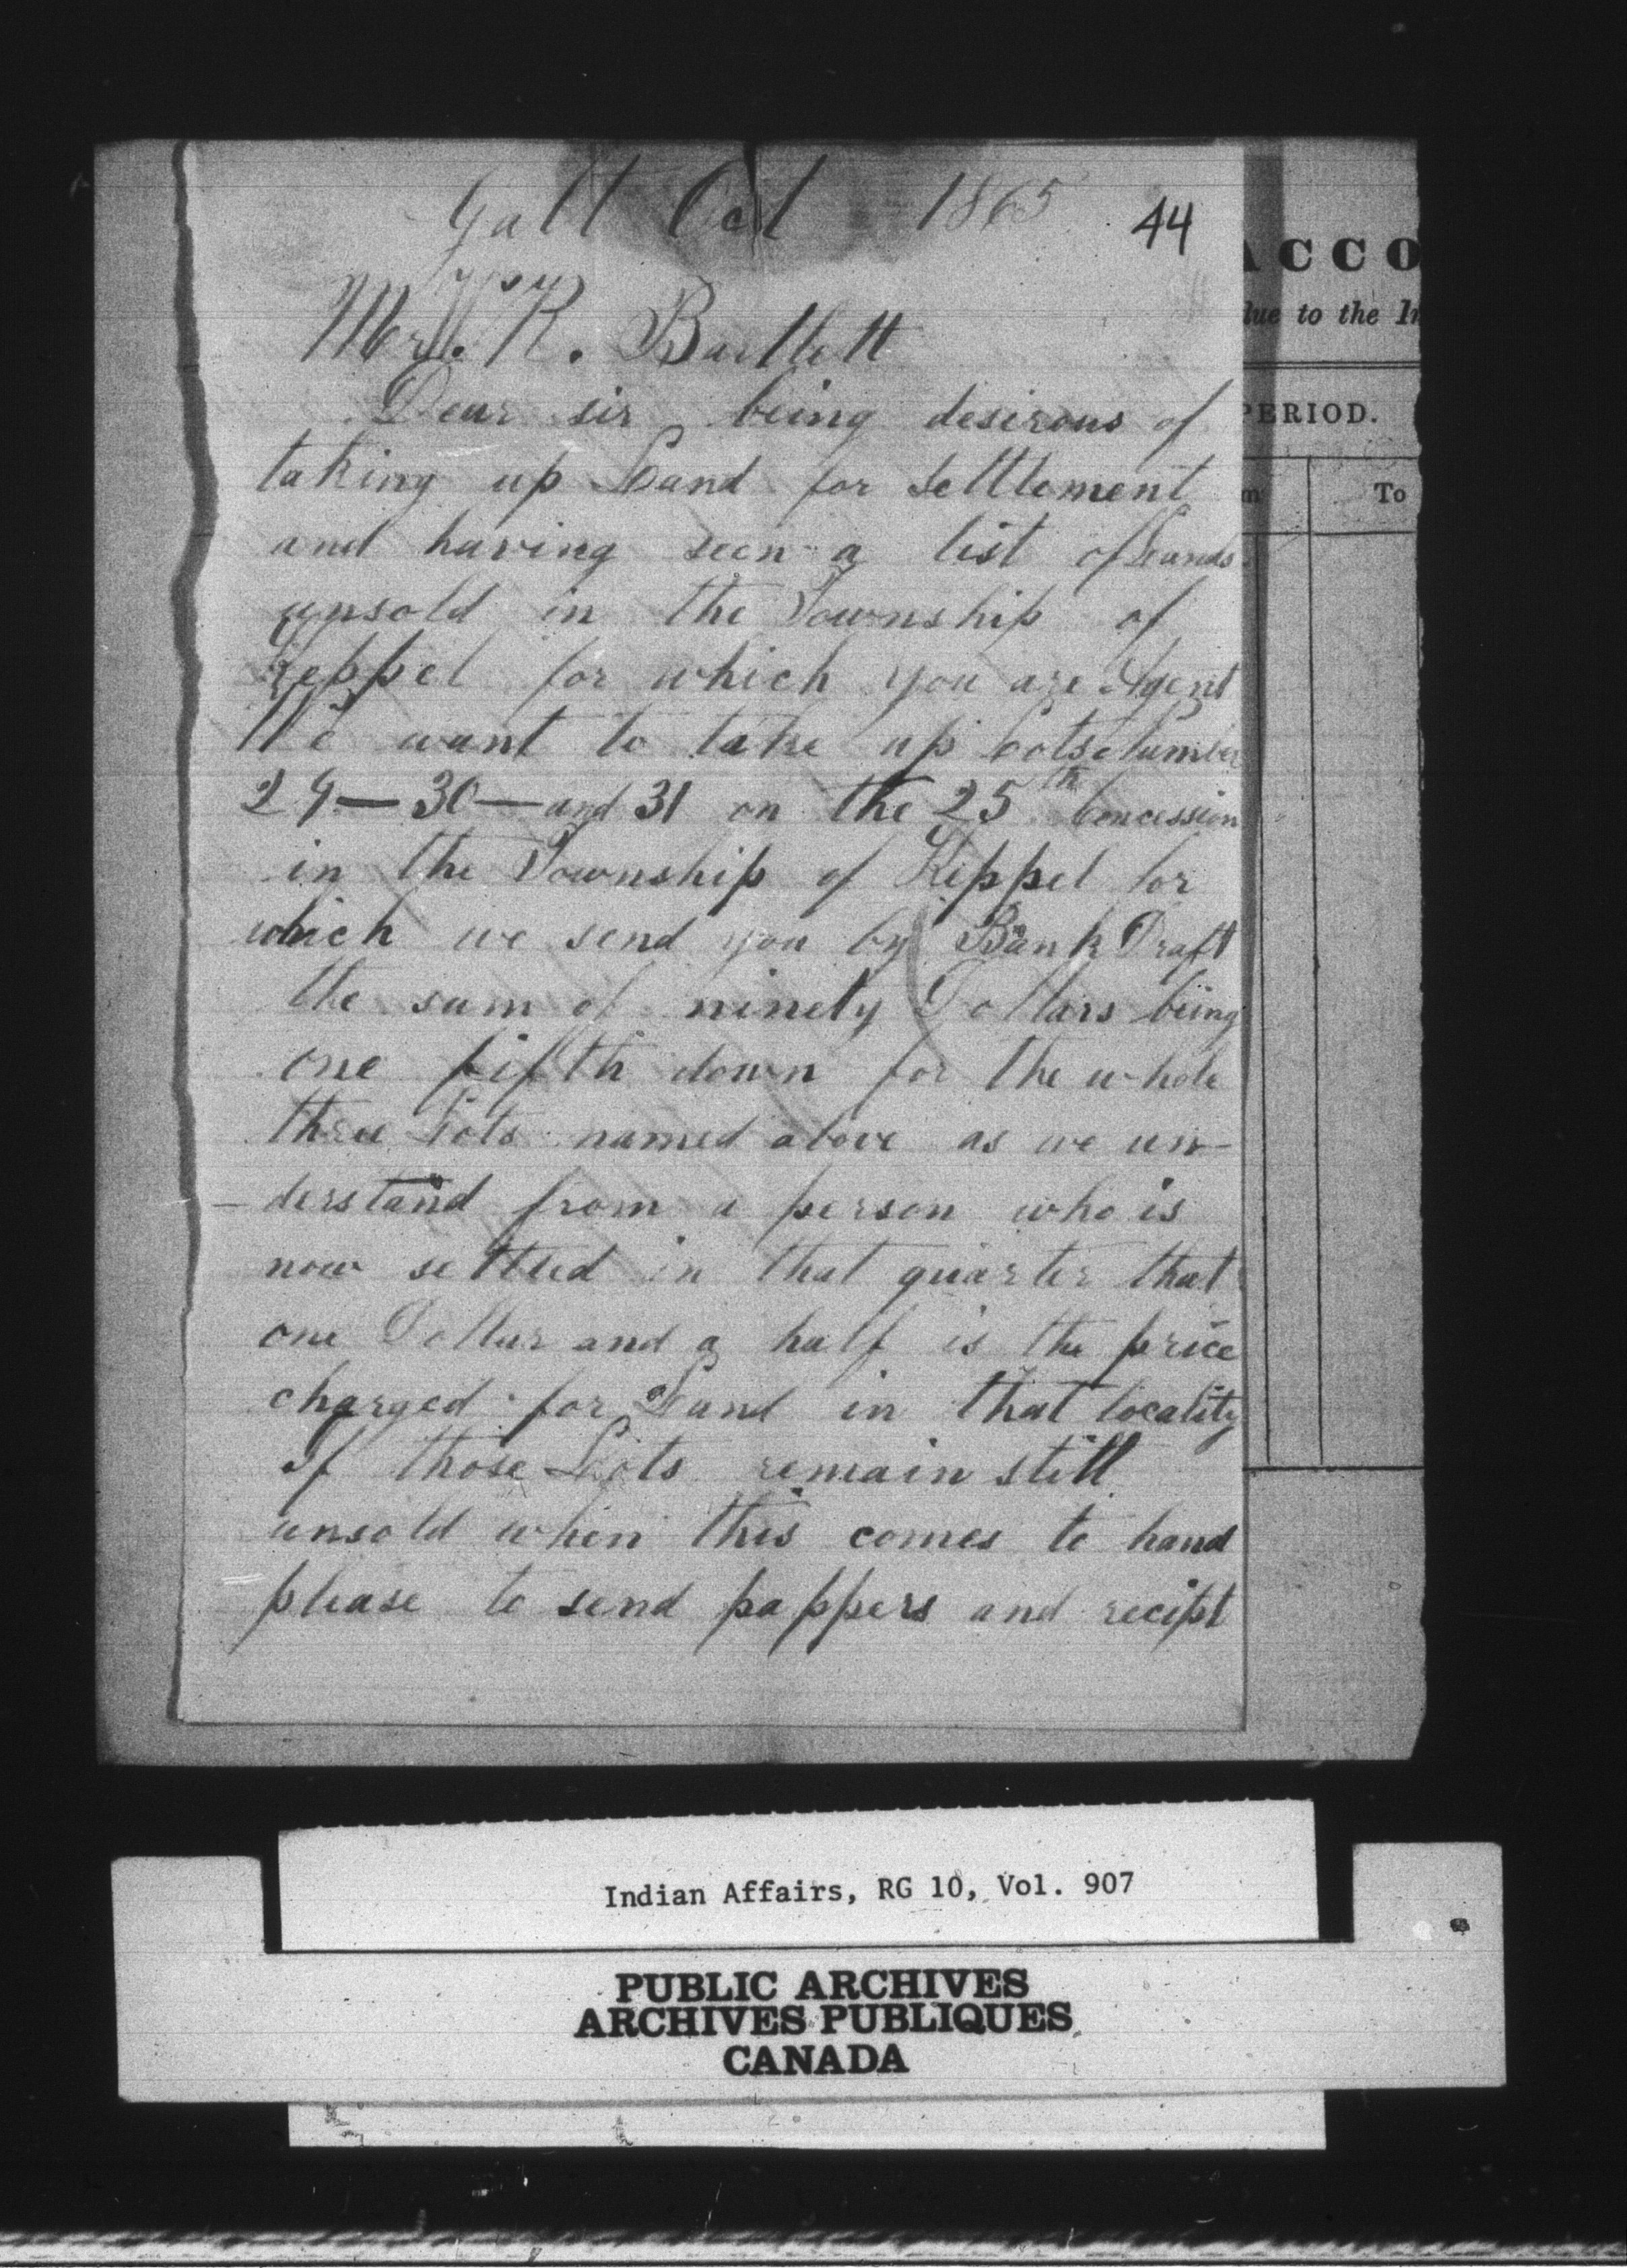 Galt Oct 1865
44
Mr. R. Bartlett
Dear sir being desirous of
taking up Land for settlement
and having seen a list of Lands
unsold in the Township of
Keppel for which you are Agent
We want to take up Lots Number
29 — 30 — and 31 on the 25th Concession
in the Township of Keppel for
which we send you by Bank Draft
the sum of ninety Dollars being
one fifth down for the whole
three Lots named above as we un-
-derstand from a person who is
now settled in that quarter that
one Dollar and a half is the price
charged for Land in that locality
If those Lots remain still
unsold when this comes to hand
please to send pappers and recipt
ACCO
due to the In
PERIOD.
m
To
Indian Affairs, RG 10, Vol. 907
PUBLIC ARCHIVES
ARCHIVES PUBLIQUES
CANADA